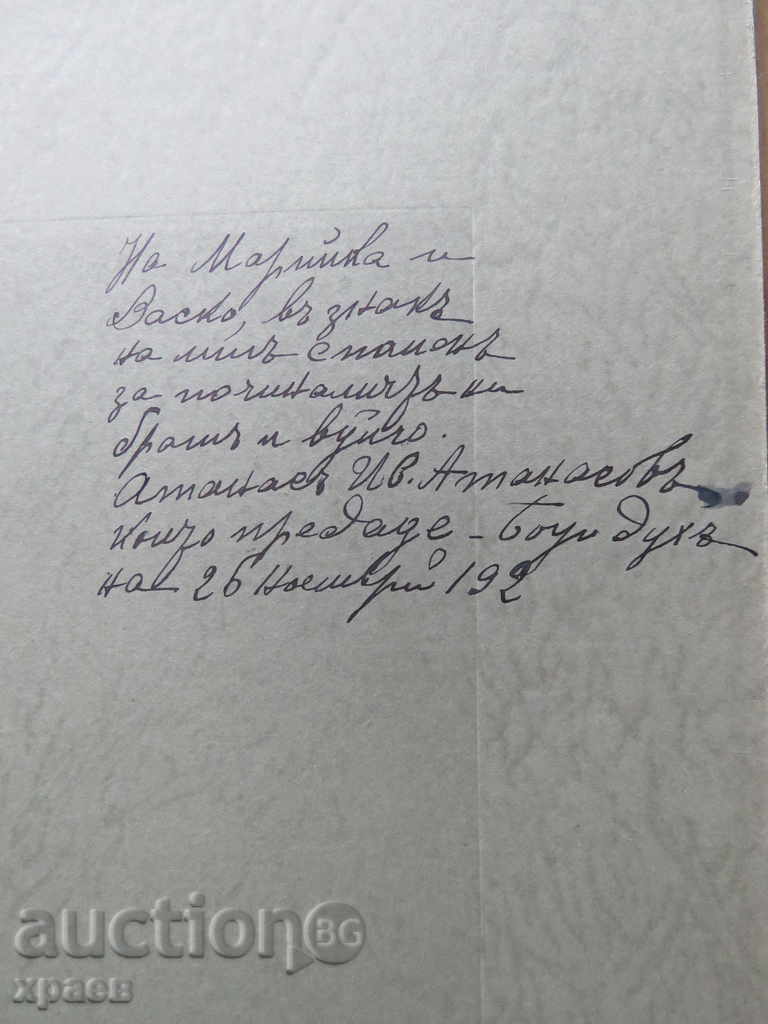 На Марийка и
Васко, въ знакъ
на милъ споменъ
за починалиятъ ни
братъ и вуйчо.
Атанасъ Ив. Атанасовъ
който предаде - Богу духъ
на 26 Ноемврий 192
auction BG
храев